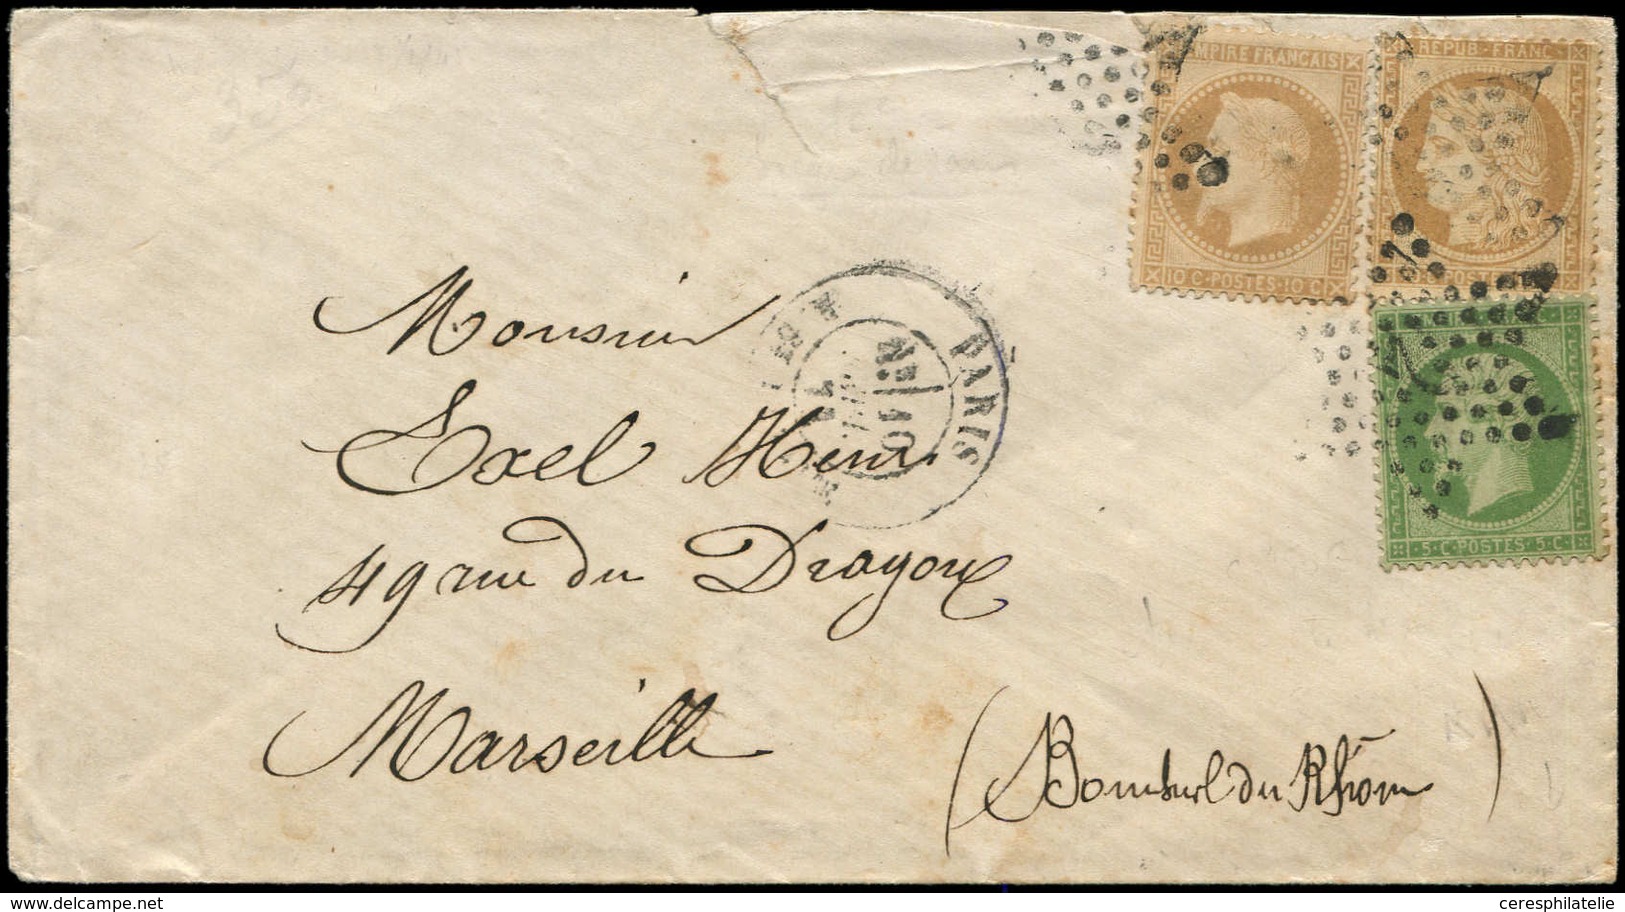 EMPIRE FRANÇAIS
10 C · POSTES · 10 C
REPUB · FRANC
POSTES
5 · C · POSTES · 5 · C
PARIS
Monsieur
Exel Henri
49 rue du Dragon
Marseille
du Rhône
delcampe.net
ceresphilatelie